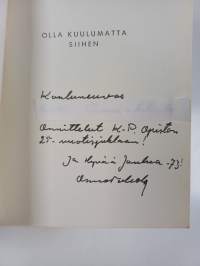 OLLA KUULUMATTA
SIIHEN
Onnittelut K-P. Opiston
25-vuotisjuhlaan!
Ja Hyvää Joulua -73!